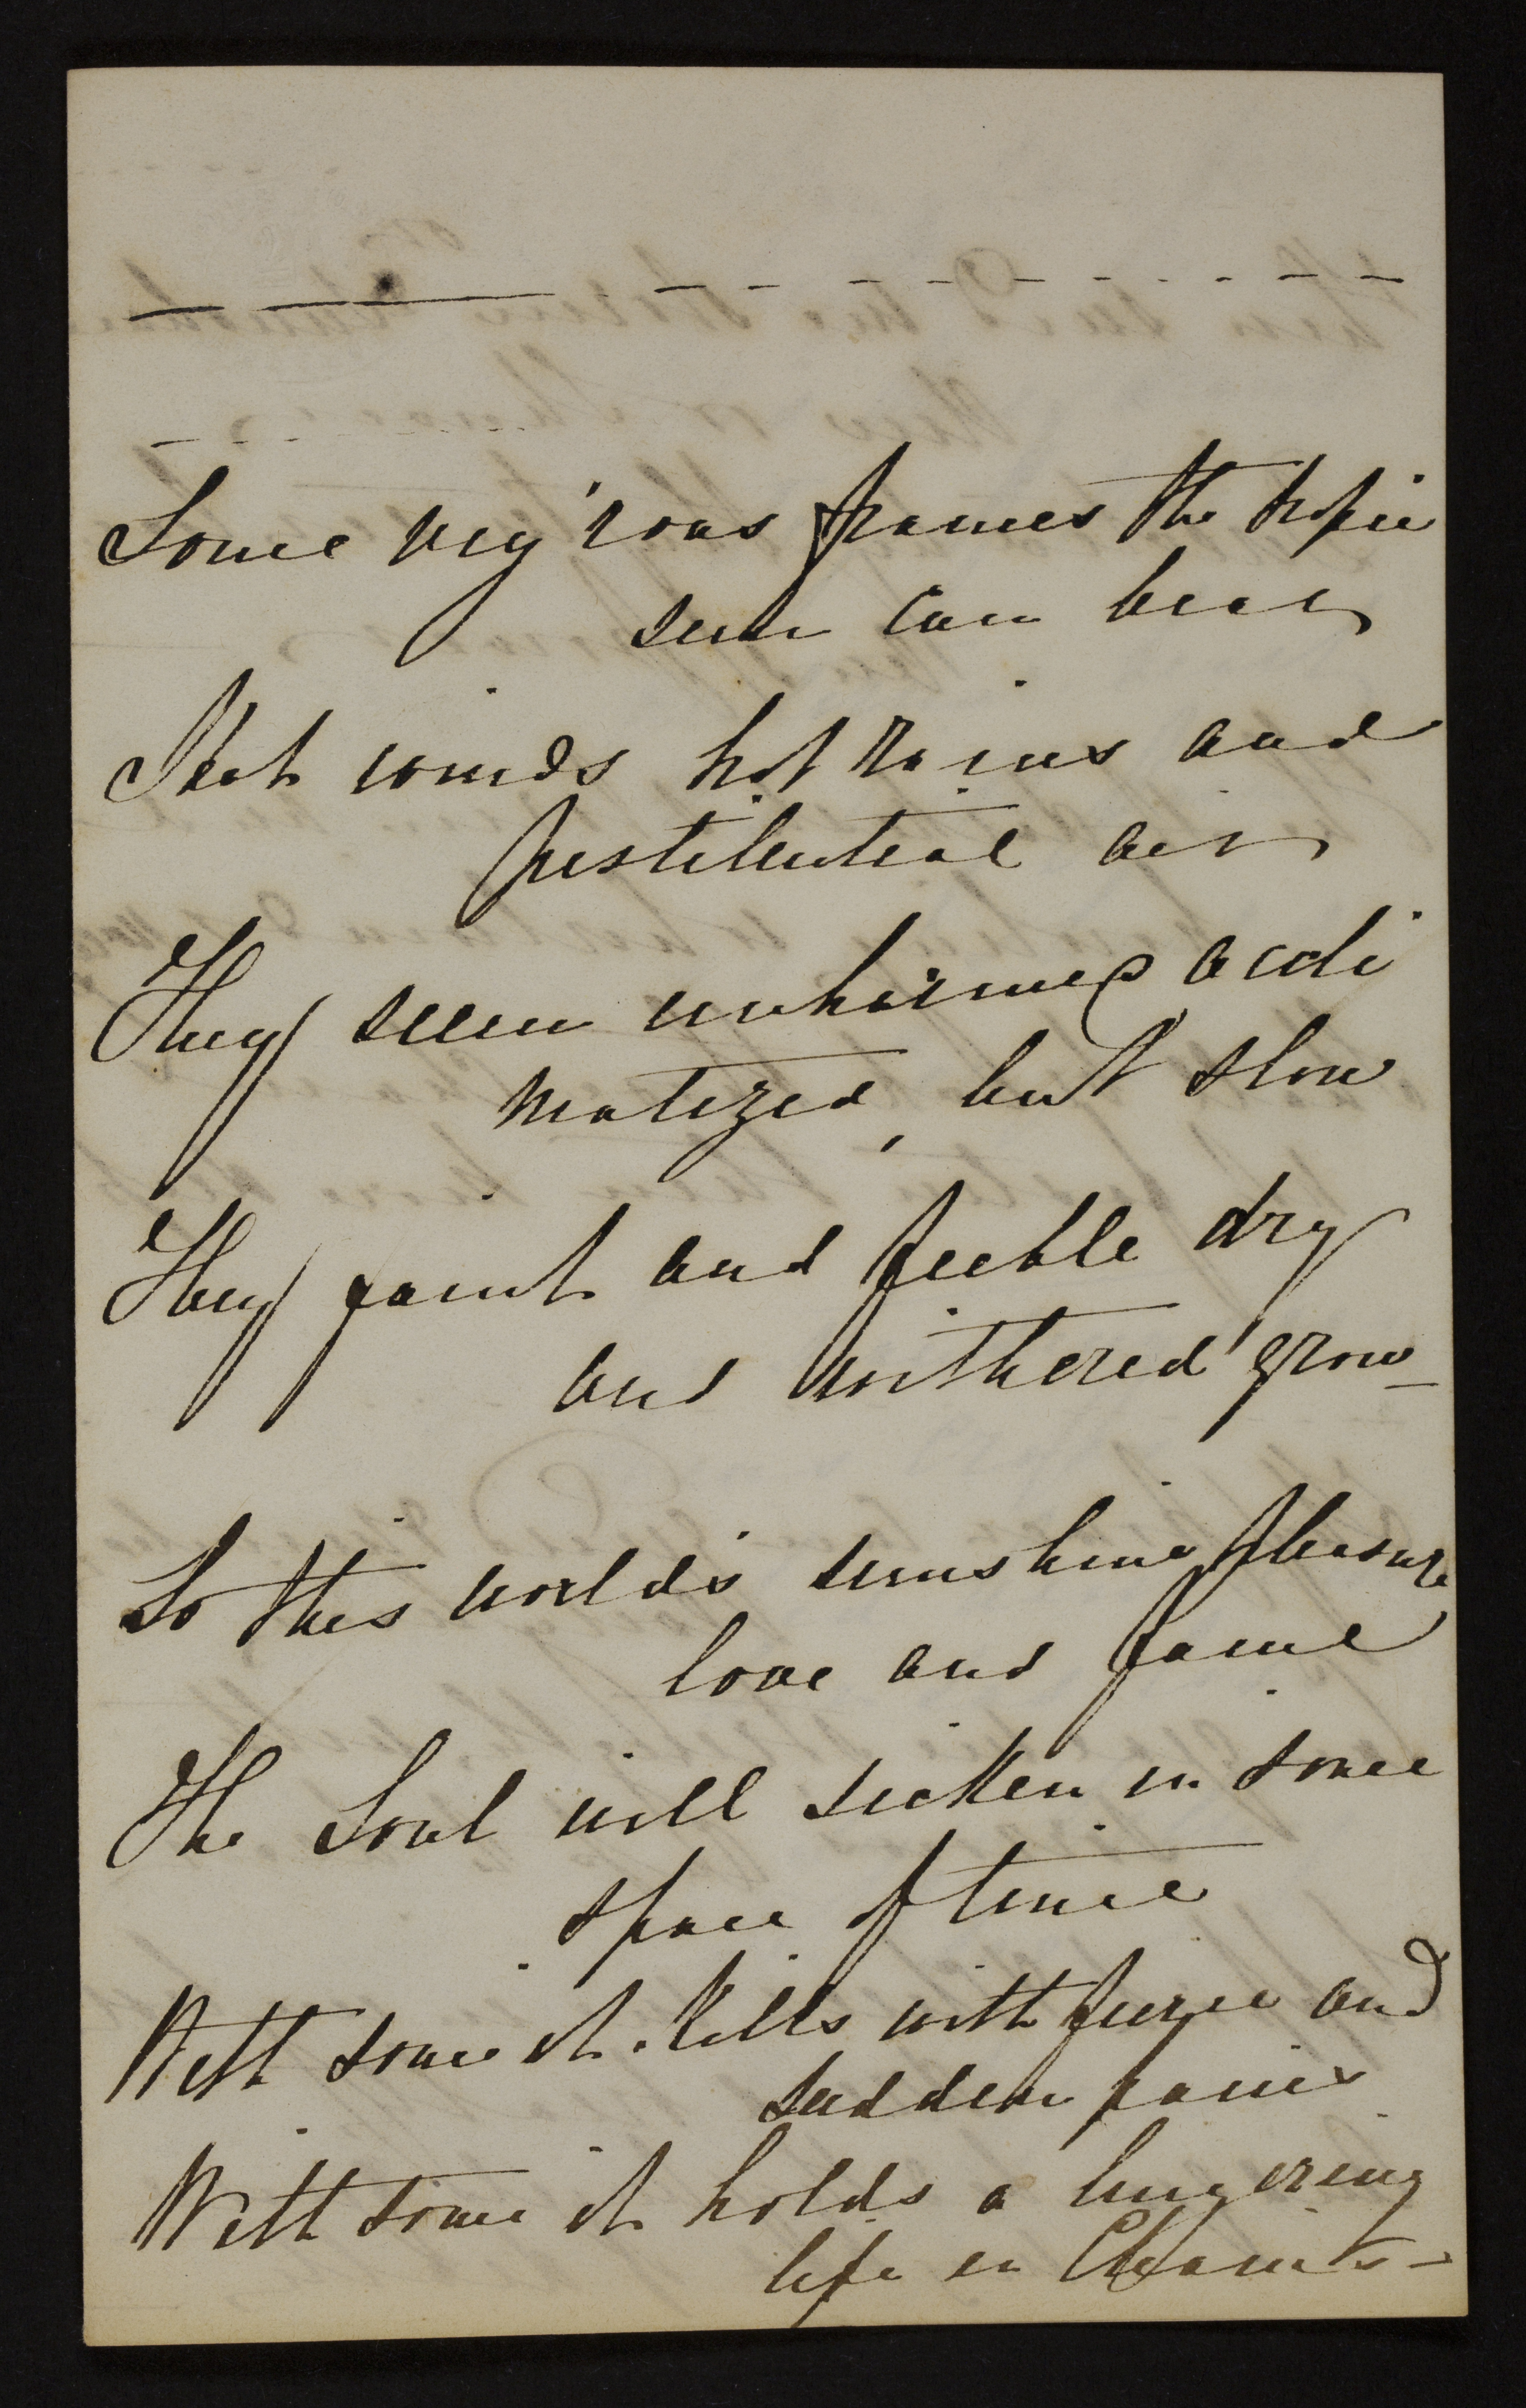 Some vig'rous frames the tropic
sun can bear
Hot winds hot rains and
pestilential air
They seem unharmed accli
matized, but slow
They faint and feeble dry
and withered grow_
So this world's sunshine, pleasure
love and fame
The Soul will sicken in some
space of time
With some it kills with fierce and
sudden pains
With some it holds a lingering
life in Chains -